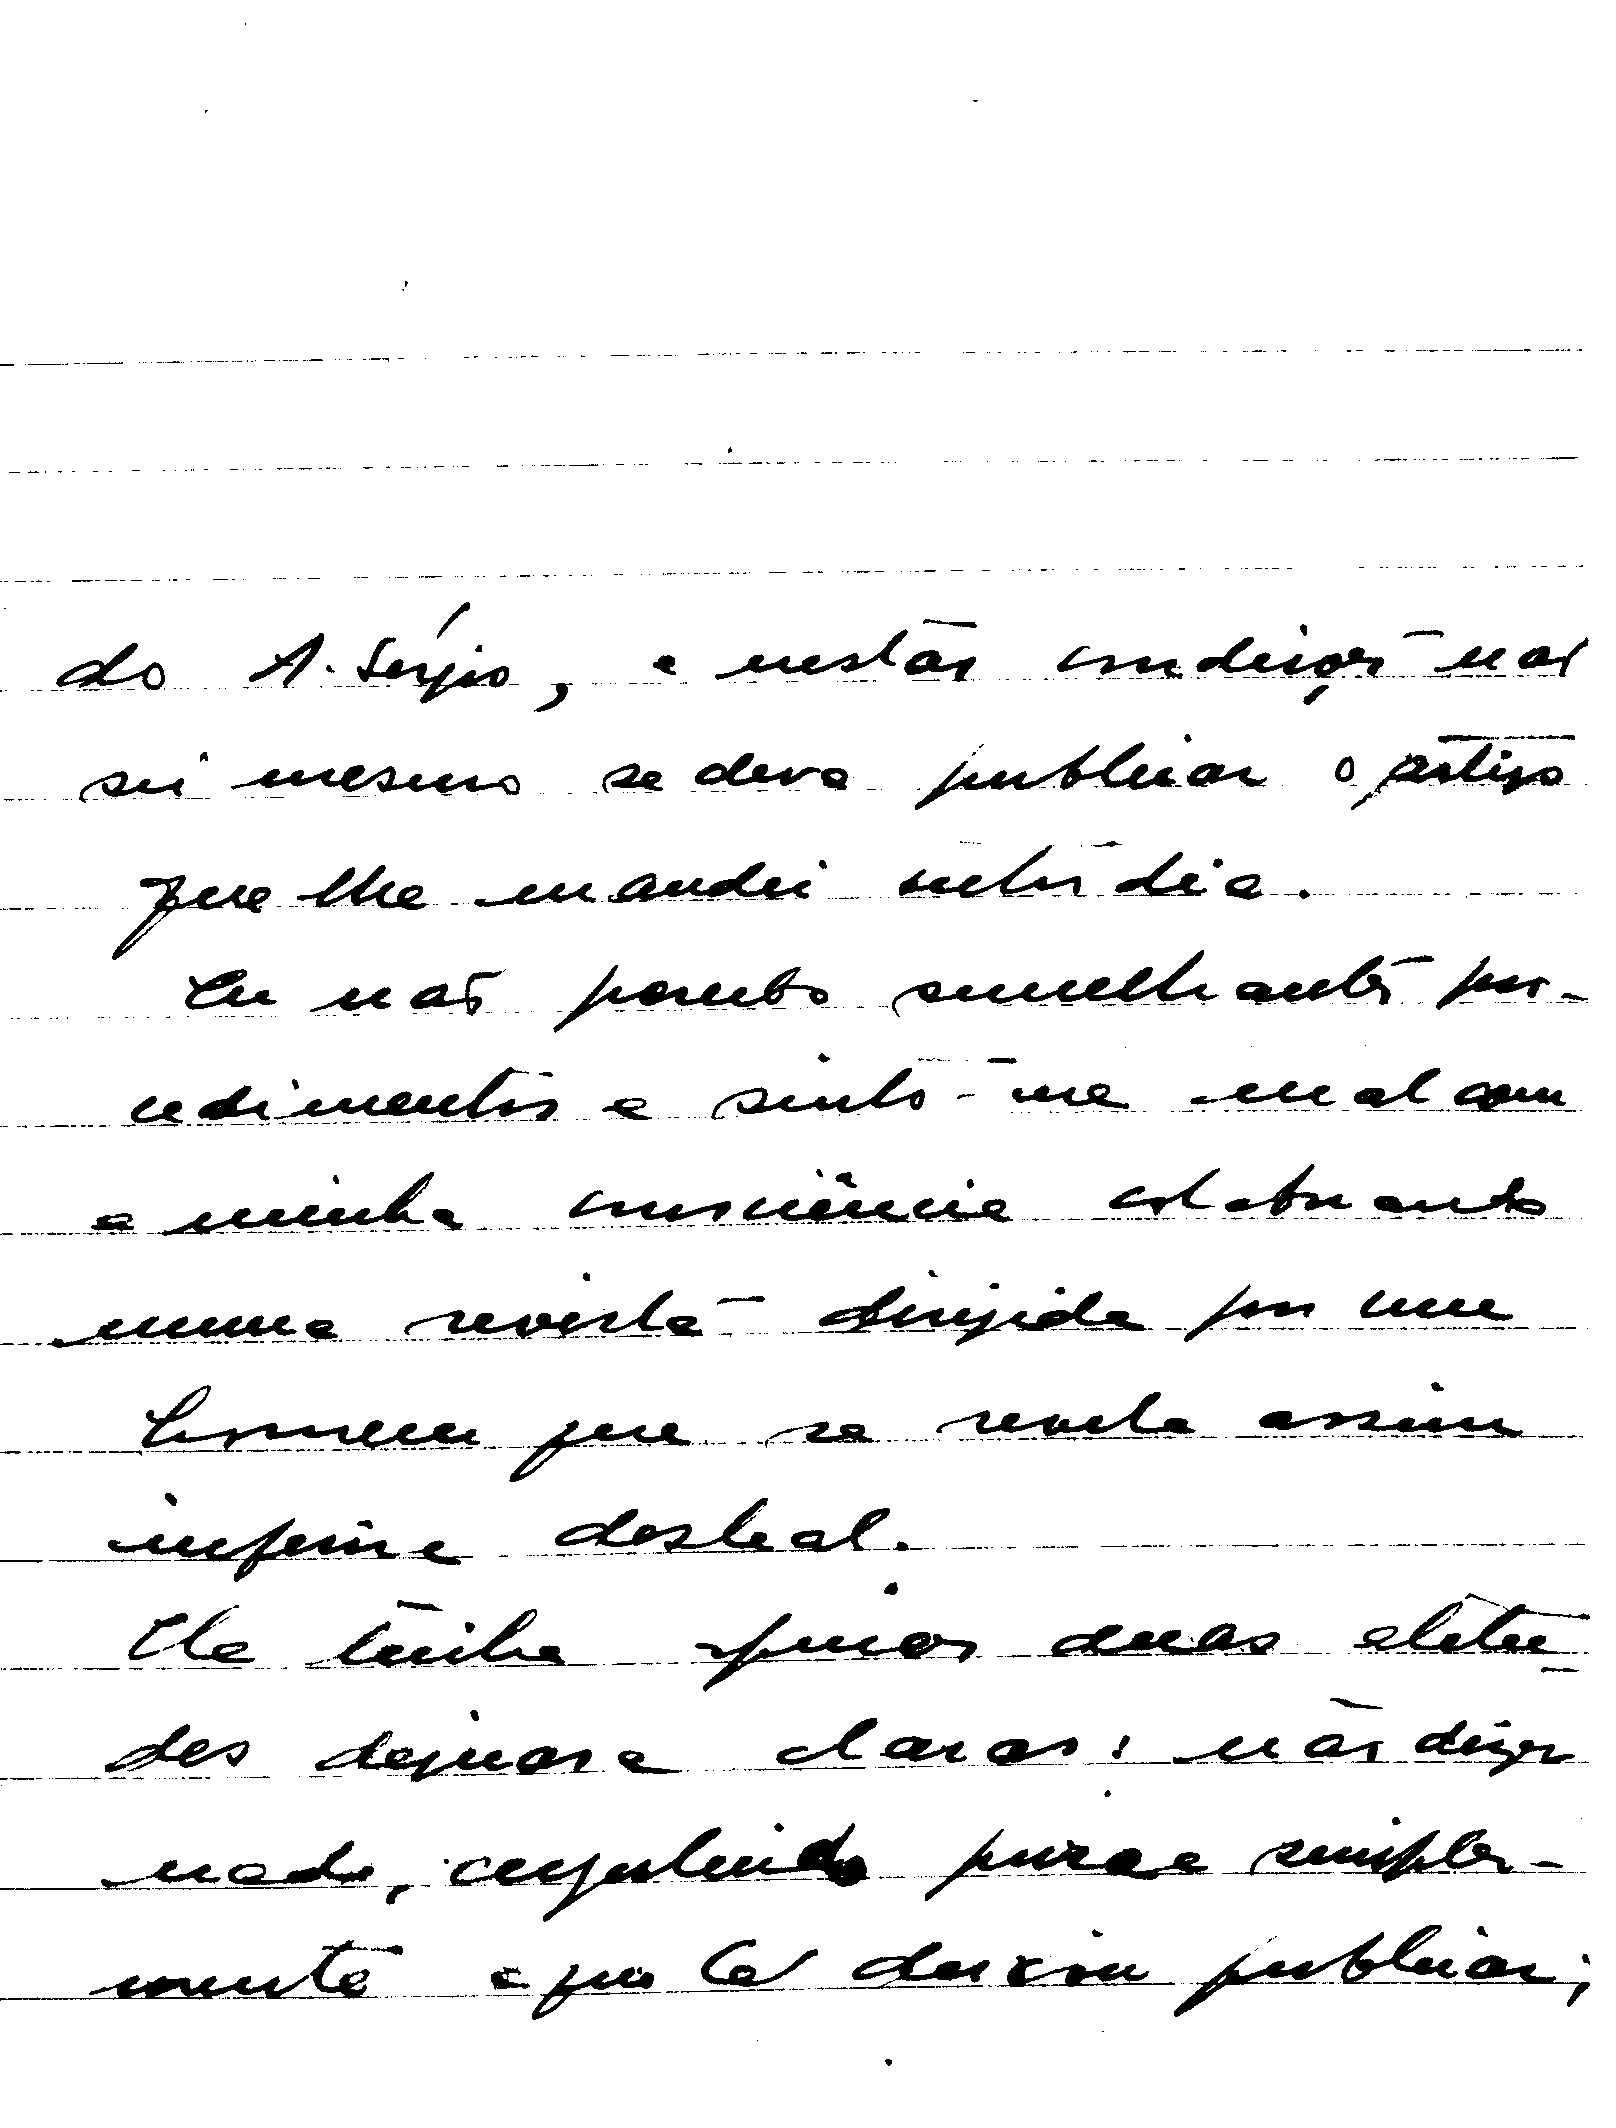 do A. Sérgio, e nestas condições não
sei mesmo se deva publicar o artigo
que lhe mandei outro dia.
Eu não perdoo semelhantes pro-
cedimentos e sinto-me mal com
a minha consciência colaborando
numa revista dirigida por um
homem que se revela assim
desleal.
Ele tinha apenas duas atitu
des claras: não dizer
nada, engulindo pura e simples-
mente o que lá deixou publicar;